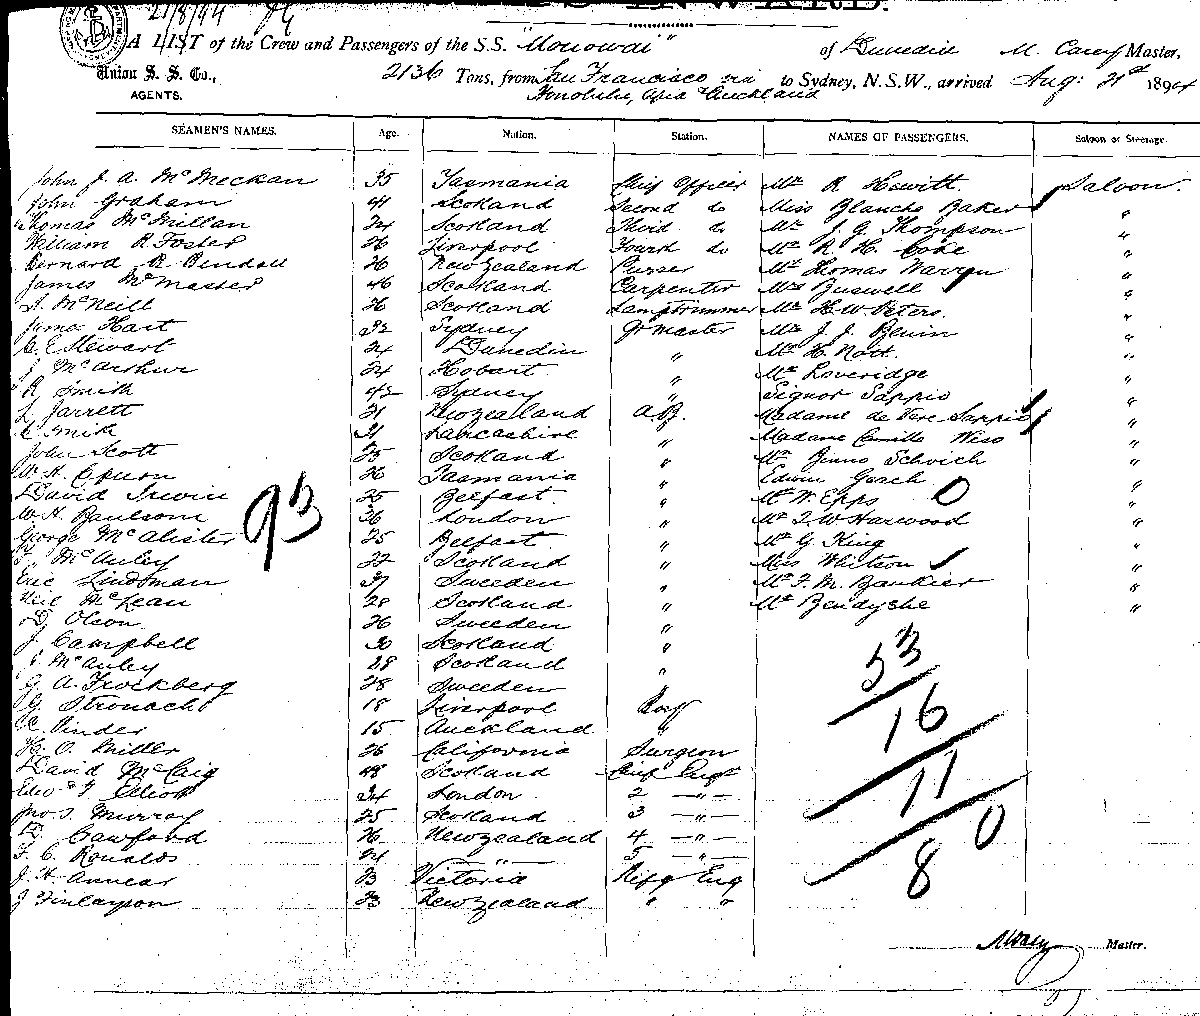 21/8/94
INWARD.
A LIST of the Crew and Passengers of the S.S. "Monowai" of Dunedin M. Carey Master,
Union S. S. Co., 2136 Tons, from San Francisco via to Sydney, N.S.W., arrived Aug: 21st 1894
AGENTS. Honolulu, Apia & Auckland
SEAMEN'S NAMES. Age. Nation. Station. NAMES OF PASSENGERS. Saloon or Steerage.
John J. A. McMeckan 35 Tasmania Chief Officer Mr R Hewitt. Saloon.
John Graham 41 Scotland Second do Miss Blanche Baker "
Thomas McMillan 24 Scotland Third do Mr J. G. Thompson "
William R. Foster 26 Liverpool Fourth do Mr R. H. Cobe "
Bernard R Bendall 26 New Zealand Purser Mr Thomas Warren "
James McMaster 46 Scotland Carpenter Mrs Buswell "
McNeill 26 Scotland Lamptrimmer Mr H. W. Peters. "
James Hart 32 Sydney Qr Master Mr J. J. "
C. E. Stewart 24 Dunedin " Mr H. Nott. "
J McArthur 24 Hobart " Mr Loveridge "
R Smith 42 Sydney " Signor Sappio "
L Jarrett 21 New Zealand A.B. Madame de Vere Sappio "
Smith 31 Lancashire " Madame Camille "
John Scott 25 Scotland " Mr Schvich "
W. H. 26 Tasmania " Edwin Gesch "
David Irwin 25 Belfast " Mr W. Epps 0 "
W. H. Paulson 36 London " Mr T. W Harwood "
George McAlister 93 25 Belfast " Mr G King "
McAuley 22 Scotland " Miss Whitson "
Eric Lindman 37 Sweden " Mr F. M. Bankier "
Neil McLean 28 Scotland " Mr Bendyshe "
D, Olson 26 Sweeden "
J. Campbell 30 Scotland " 53
J. McAuley 28 Scotland "
G. A. Frockberg 28 Sweeden "
G. Stronach 18 Liverpool Boy 16
Pinder 15 Auckland "
H. O. Miller 26 California Surgeon
David McCaig 48 Scotland Chief Engr 11
Edwd F Elliott 34 London 2 — " —
Jno. S. Murray 25 Scotland 3 — " — 0
Cawford 26 New Zealand 4 — " —
F. C. Ronalds 24 — " — 5 — " —
J. H. Annear 23 Victoria Refg Eng 8
J Finlayson 23 New Zealand " "
M Carey Master.